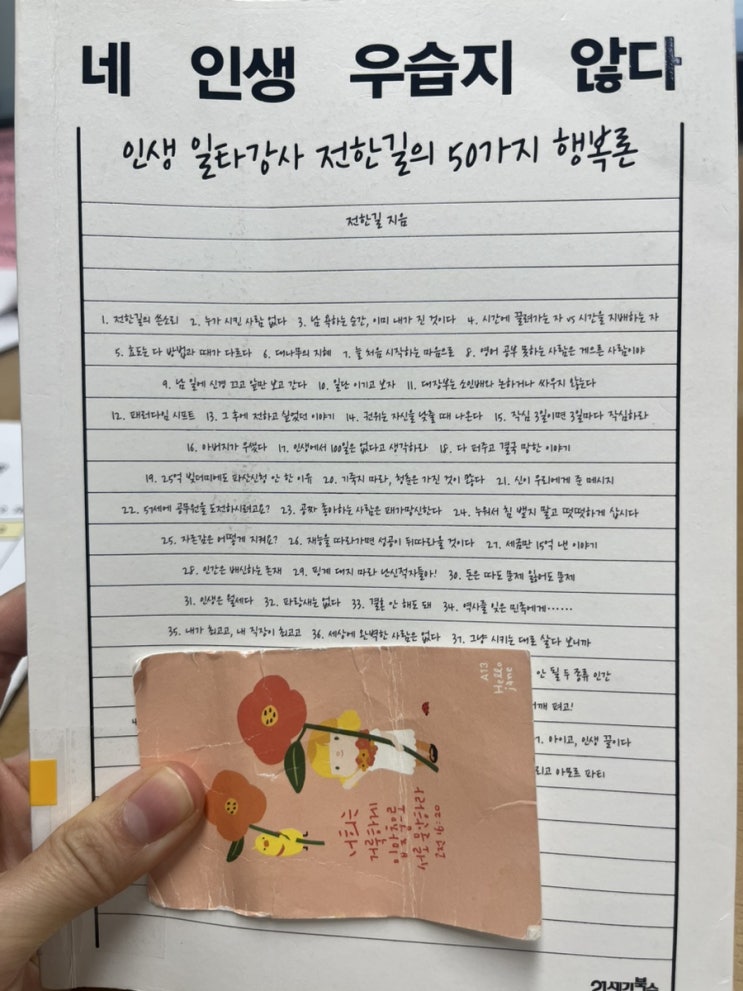 네 인생 우습지 않다
인생 일타강사 전한길의 50가지 행복론
전한길 지음
1. 전한길의 쓴소리 2. 누가 시킨 사람 없다 3. 남 욕하는 순간, 이미 내가 진 것이다 4. 시간에 끌려가는 자 vs 시간을 지배하는 자
5. 효도는 다 방법과 때가 다르다 6. 대나무의 지혜 7. 늘 처음 시작하는 마음으로 8. 영어 공부 못하는 사람은 게으른 사람이야
9. 남 일에 신경 끄고 앞만 보고 간다 10. 일단 이기고 보자 11. 대장부는 소인배와 논하거나 싸우지 않는다
12. 패러다임 시프트 13. 그 후에 전하고 싶었던 이야기 14. 권위는 자신을 낮출 때 나온다 15. 작심 3일이면 3일마다 작심하라
16. 아버지가 우셨다 17. 인생에서 100일은 없다고 생각하라 18. 다 퍼주고 결국 망한 이야기
19. 25억 빚더미에도 파산신청 안 한 이유 20. 기죽지 마라, 청춘은 가진 것이 많다 21. 신이 우리에게 준 메시지
22. 57세에 공무원을 도전하시려고요? 23. 공짜 좋아하는 사람은 패가망신한다 24. 누워서 침 뱉지 말고 떳떳하게 삽시다
25. 자존감은 어떻게 지켜요? 26. 재능을 따라가면 성공이 뒤따라올 것이다 27. 세금만 15억 낸 이야기
28. 인간은 배신하는 존재 29. 핑계 대지 마라 난신적자들아! 30. 돈은 따도 문제 잃어도 문제
31. 인생은 월세다 32. 파랑새는 없다 33. 결혼 안 해도 돼 34. 역사를 잊은 민족에게……
35. 내가 최고고, 내 직장이 최고고 36. 세상에 완벽한 사람은 없다 37. 그냥 시키는 대로 살다 보니까
안 될 두 종류 인간
깨 펴고!
7. 아이고, 인생 꿀이다
리고 아모르 파티
A13
Hello
jane
너희는
거룩하게
입맞춤으로
서로 문안하라
고전 16:20
21세기북스